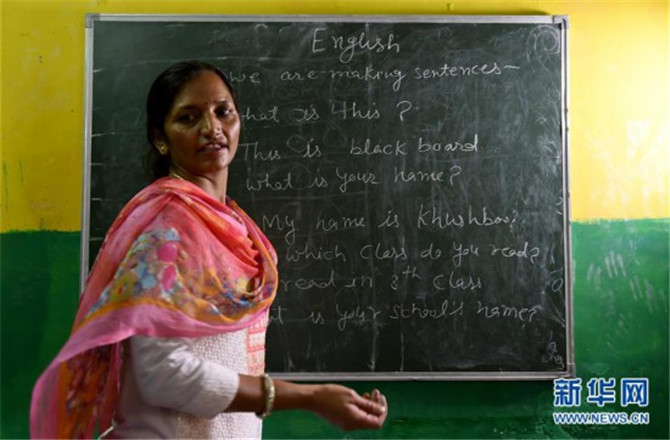 English
we are making sentences-
hat is this ?
This is black board
What is your name?
My name is Khushboo?
which class do you read?
read in 8th class
is your school's name?
新华网
WWW.NEWS.CN